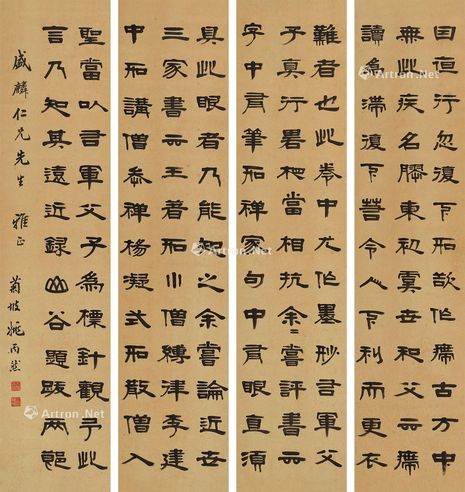 日亘行忽復下如欲作㿃古方中
無此疾名膠東初虞世和父云㿃
讀為滯復下著令人下利而更衣
難者也此卷中尤作墨妙右軍父
子真行畧相當相抗余嘗評書云
字中有筆如禪家句中有眼直須
具此眼者乃能知之余嘗論近世
三家書云王著如小僧縛律李建
中如講僧參禪楊凝式如散僧入
聖當以右軍父子為標針觀予此
言乃知其遠近錄山谷題跋兩節
盛麟仁兄先生 雅正 菊坡姚丙然
Artron.Net
Artron.Net
Artron.Net
Artron.Net